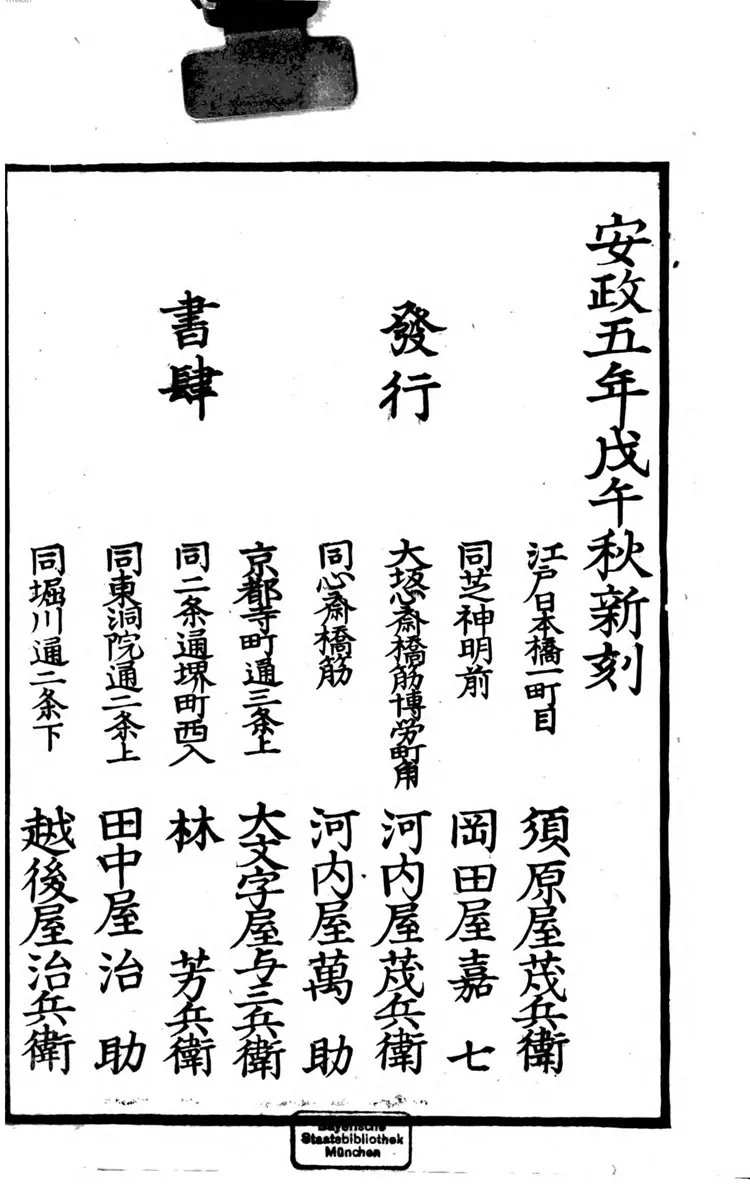 安政五年戊午秋新刻
發行
書肆
江戸日本橋一町目 須原屋茂兵衛
同芝神明前 岡田屋嘉七
大坂心斎橋筋博労町角 河内屋茂兵衛
同心斎橋筋 河内屋萬助
京都寺町通三条上 大文字屋与三兵衛
同二条通堺町西入 林芳兵衛
同東洞院通二条上 田中屋治助
同堀川通二条下 越後屋治兵衛
Bayerische
Staatsbibliothek
München